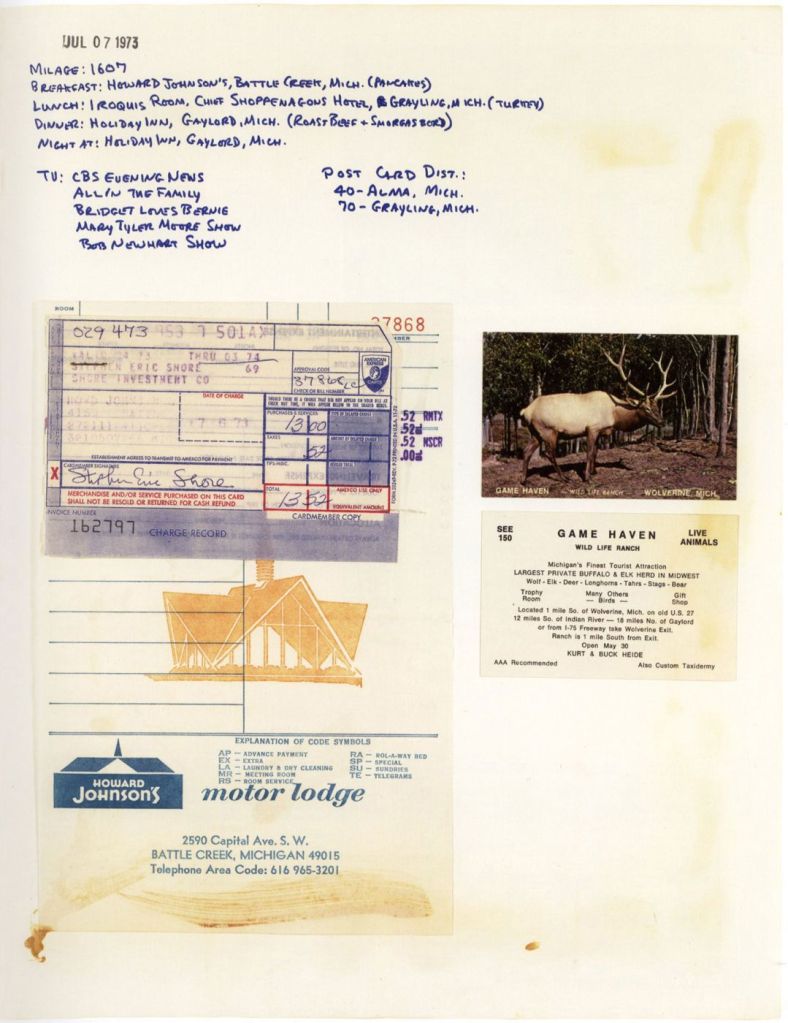 JUL 07 1973
MILAGE: 1607
BREAKFAST: HOWARD JOHNSON'S, BATTLE CREEK, MICH. (PANCAKES)
LUNCH: IROQUIS ROOM, CHIEF SHOPPENAGONS HOTEL, GRAYLING, MICH. (TURKEY)
DINNER: HOLIDAY INN, GAYLORD, MICH. (ROAST BEEF + SMORGASBORD)
NIGHT AT: HOLIDAY INN, GAYLORD, MICH.
TV: CBS EVENING NEWS
ALL IN THE FAMILY
BRIDGET LOVES BERNIE
MARY TYLER MOORE SHOW
BOB NEWHART SHOW
POST CARD DIST.:
40-ALMA, MICH.
70-GRAYLING, MICH.
ROOM
27868
029 473
THRU 03 74
STEPHEN ERIC SHORE 69
SHORE INVESTMENT CO
APPROVAL CODE
37868
CHECK OR BILL NUMBER
AMERICAN EXPRESS
DATE OF CHARGE
7 6 73
PURCHASES & SERVICES
13 00
TAXES
52
ESTABLISHMENT AGREES TO TRANSMIT TO AMEXCO FOR PAYMENT
CARDMEMBER SIGNATURE
X Stephen Eric Shore
TIPS-MISC.
MERCHANDISE AND/OR SERVICE PURCHASED ON THIS CARD
SHALL NOT BE RESOLD OR RETURNED FOR CASH REFUND
TOTAL
13 52
AMEXCO USE ONLY
EQUIVALENT AMOUNT
CARDMEMBER COPY
INVOICE NUMBER
162797
CHARGE RECORD
.52 RMTX
.52
.52 NSCR
.00
EXPLANATION OF CODE SYMBOLS
AP — ADVANCE PAYMENT
EX — EXTRA
LA — LAUNDRY & DRY CLEANING
MR — MEETING ROOM
RS — ROOM SERVICE
RA — ROL-A-WAY BED
SP — SPECIAL
SU — SUNDRIES
TE — TELEGRAMS
HOWARD
JOHNSON'S
motor lodge
2590 Capital Ave. S. W.
BATTLE CREEK, MICHIGAN 49015
Telephone Area Code: 616 965-3201
GAME HAVEN — WILD LIFE RANCH — WOLVERINE, MICH.
SEE
150
GAME HAVEN
WILD LIFE RANCH
LIVE
ANIMALS
Michigan's Finest Tourist Attraction
LARGEST PRIVATE BUFFALO & ELK HERD IN MIDWEST
Wolf - Elk - Deer - Longhorns - Tahrs - Stags - Bear
Trophy
Room
Many Others
— Birds —
Gift
Shop
Located 1 mile So. of Wolverine, Mich. on old U.S. 27
12 miles So. of Indian River — 18 miles No. of Gaylord
or from I-75 Freeway take Wolverine Exit.
Ranch is 1 mile South from Exit.
Open May 30
KURT & BUCK HEIDE
AAA Recommended
Also Custom Taxidermy